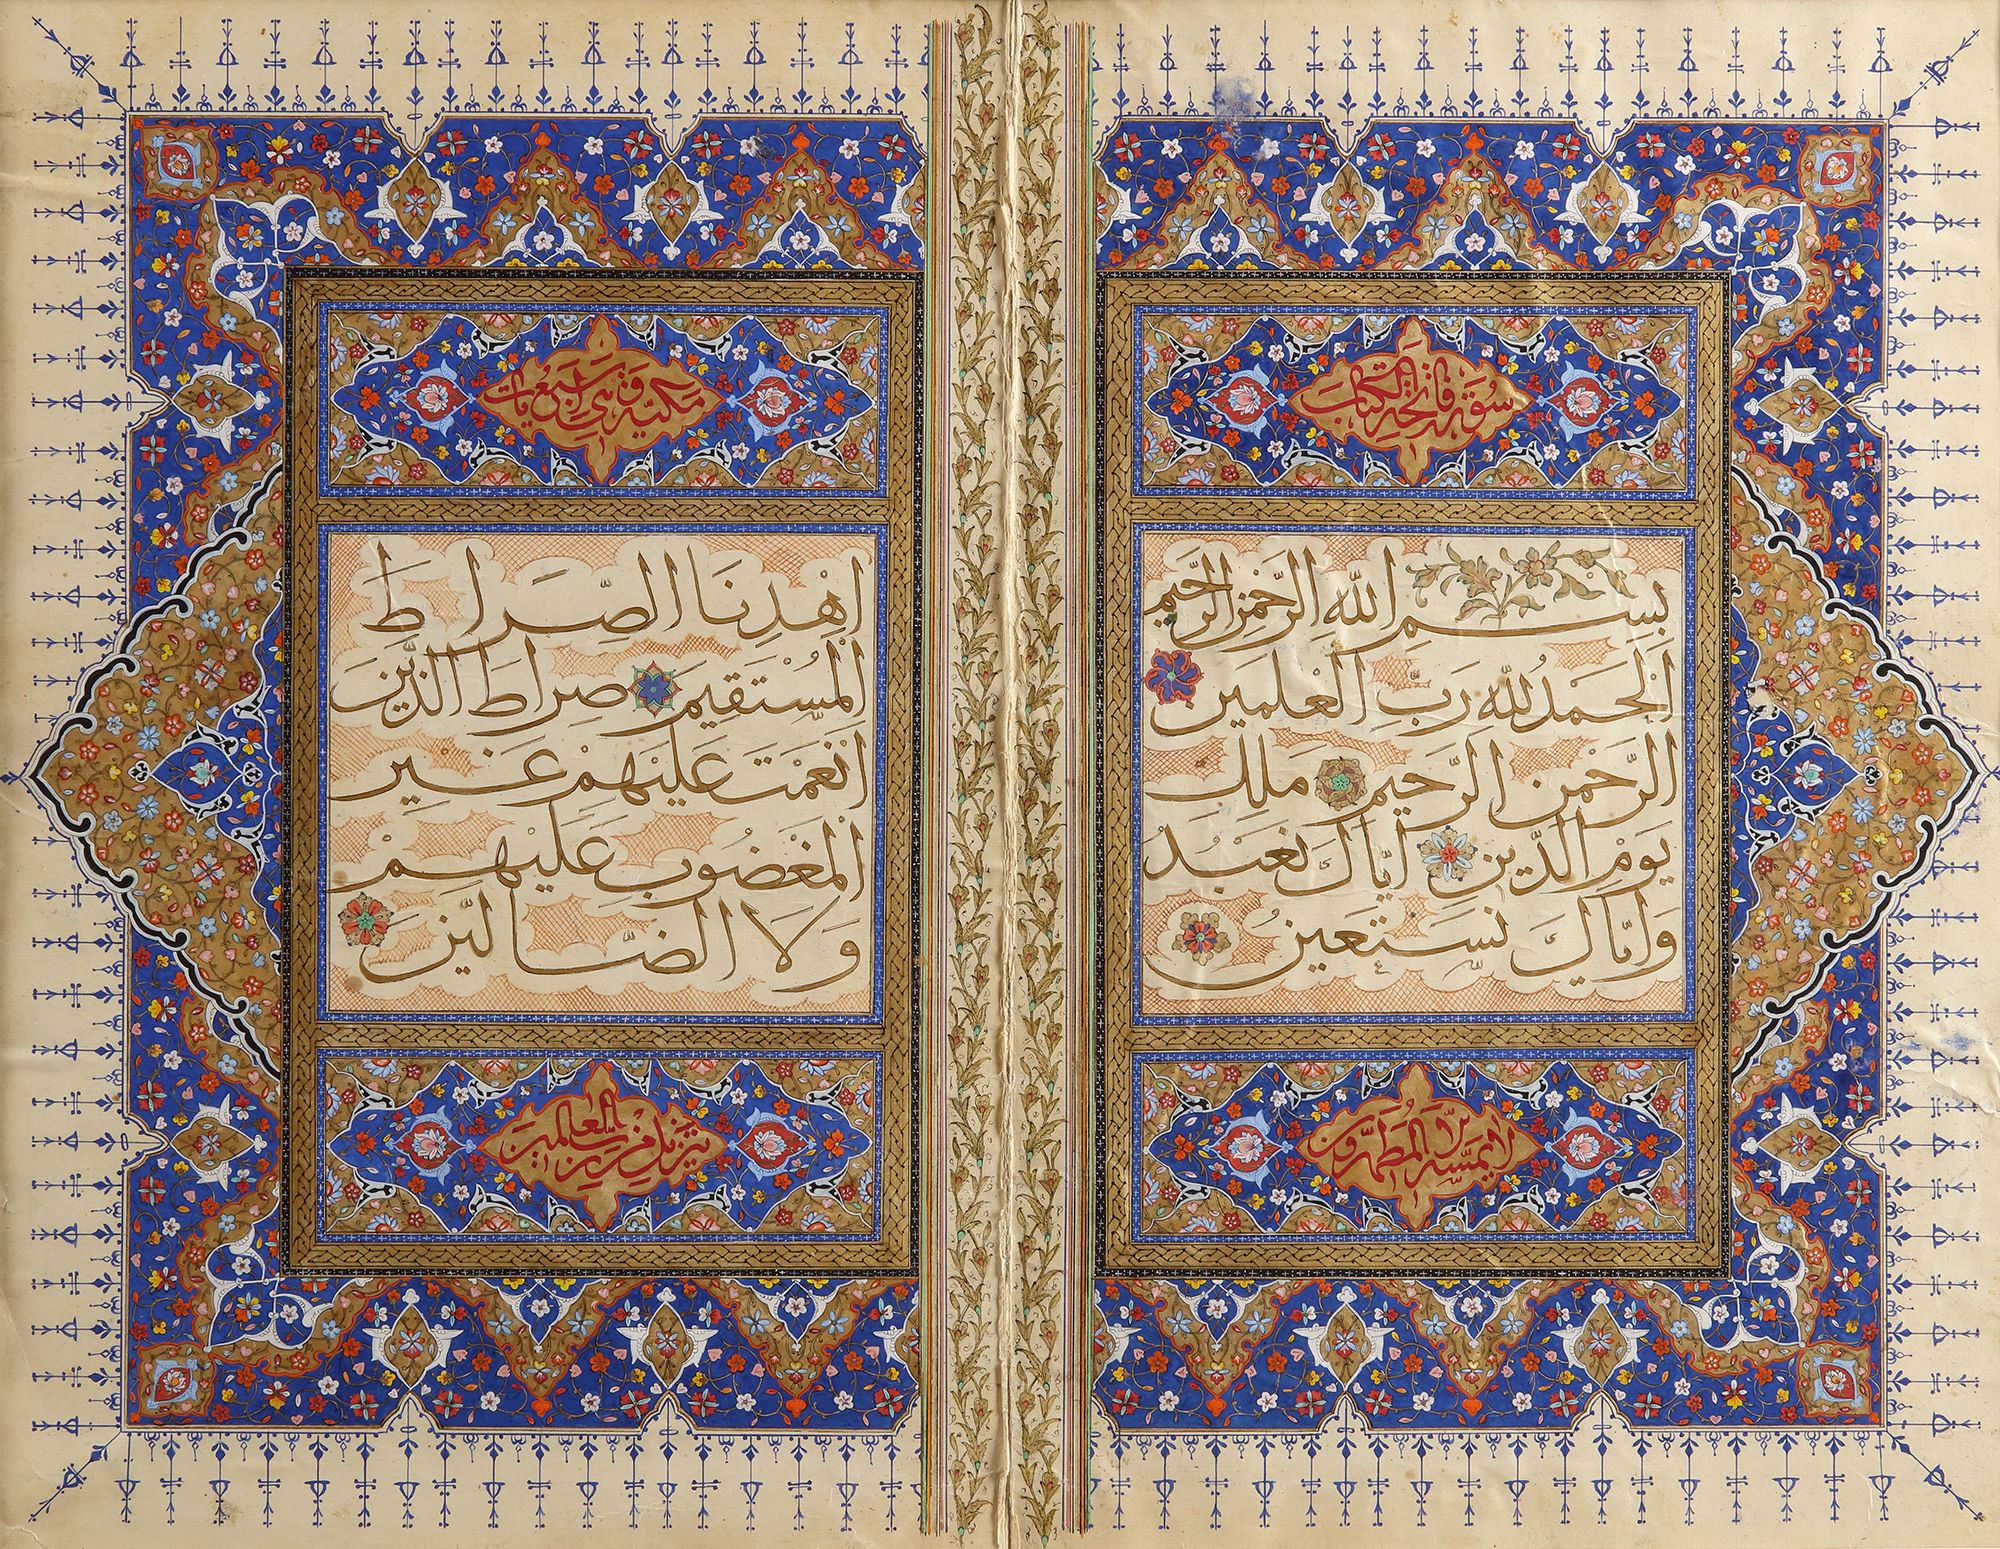 سورة فاتحة الكتاب
بِسْمِ اللّٰه الرَّحْمٰنِ الرَّحِيمِ
اَلْحَمْدُ لِلّٰه رَبِّ الْعٰلَمِين
الرَّحْمٰنِ الرَّحِيمِ مٰلِكِ
يَوْمِ الدِّينِ اِيَّاكَ نَعْبُدُ
وَاِيَّاكَ نَسْتَعِينُ
لا يمسه الا المطهرون
مكية وهي سبع آيات
اِهْدِنَا الصِّرَاطَ
الْمُسْتَقِيمَ صِرَاطَ الَّذِينَ
اَنْعَمْتَ عَلَيْهِمْ غَيْرِ
الْمَغْضُوبِ عَلَيْهِمْ
وَلَا الضَّالِّينَ
تنزيل من رب العالمين